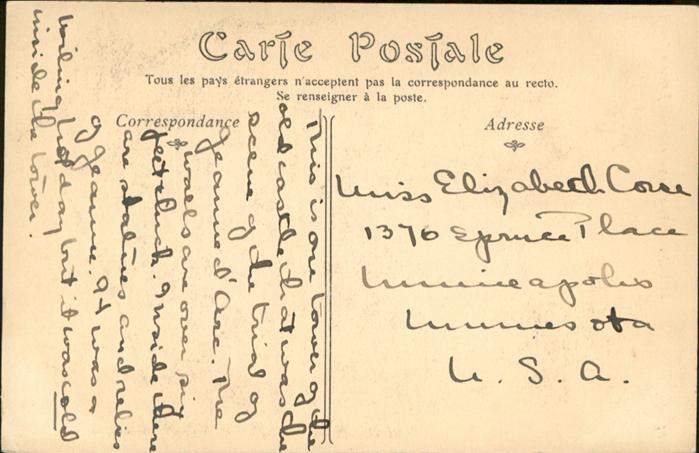 Carte Postale
Tous les pays étrangers n'acceptent pas la correspondance au recto.
Se renseigner à la poste.
Correspondance
Adresse
This is one tower of the
old castle that was the
scene of the trial of
Jeanne d'Arc. The
walls are over six
feet thick. Inside there
are statues and relics
of Jeanne. It was a
boiling hot day but it was cold
inside the tower.
Miss Elizabeth Corse
1376 Spruce Place
Minneapolis
Minnesota
U. S. A.